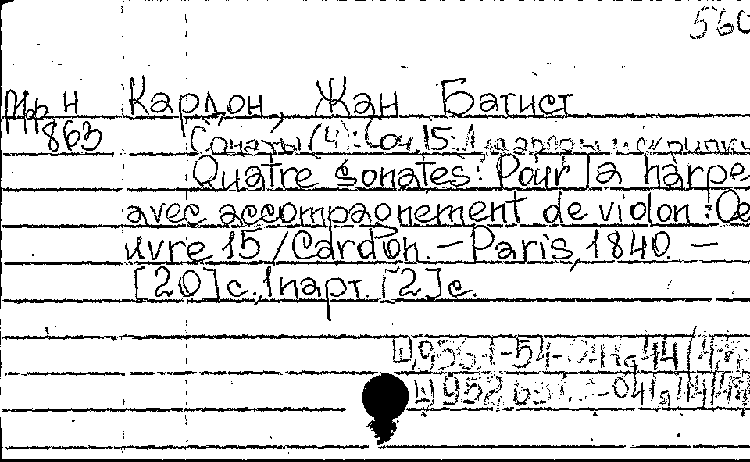 560
Кардон, Жан Батист
н 863
Сонаты (4): Соч. 15. Для арфы и скрипки
Quatre sonates: Pour la harpe
avec accompagnement de violon: Oe
uvre 15 / Cardon. — Paris, 1840 —
[20] с., 1 парт. [2] с.